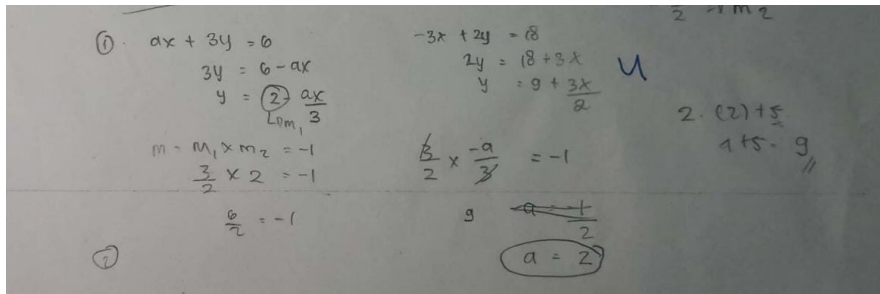 ① ax + 3y = 6
3y = 6 - ax
y = 2 - ax/3
m₁
m = m₁ × m₂ = -1
3/2 × 2 = -1
6/2 = -1
②
-3x + 2y = 18
2y = 18 + 3x
y = 9 + 3x/2
3/2 × -a/3 = -1
a = 2
2. (2) + 5
4 + 5 = 9